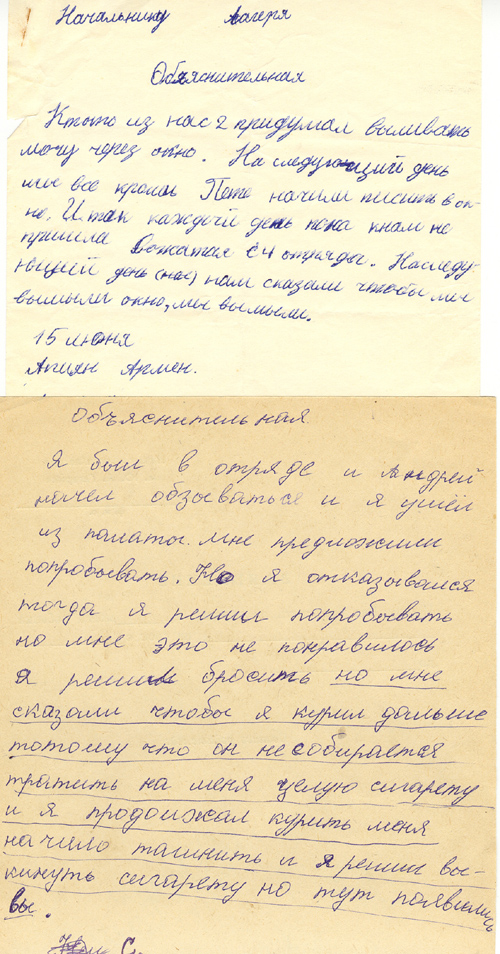 Начальнику лагеря
Объяснительная
Ктото из нас 2 придумал выливать
мочу через окно. На следующий день
мы все кроме Пети начили писить в ок-
не. И так каждый день пока кнам не
пришла Вожатая с 4 отряды. Наследу-
ющий день (нас) нам сказали чтобы мы
вымыли окно, мы вымыли.
15 июня
Апиян Армен.
Объяснительная
Я был в отряде и Андрей
начел обзываться и я ушёл
из палаты. мне предложили
попробывать. Но я отказывался
тогда я решил попробывать
но мне это не понравилось
я решил бросить но мне
сказали чтобы я курил дальше
тотому что он несобирается
тратить на меня целую сигарету
и я продолжал курить меня
начило ташнить и я решил вы-
кинуть сигарету но тут появились
вы.